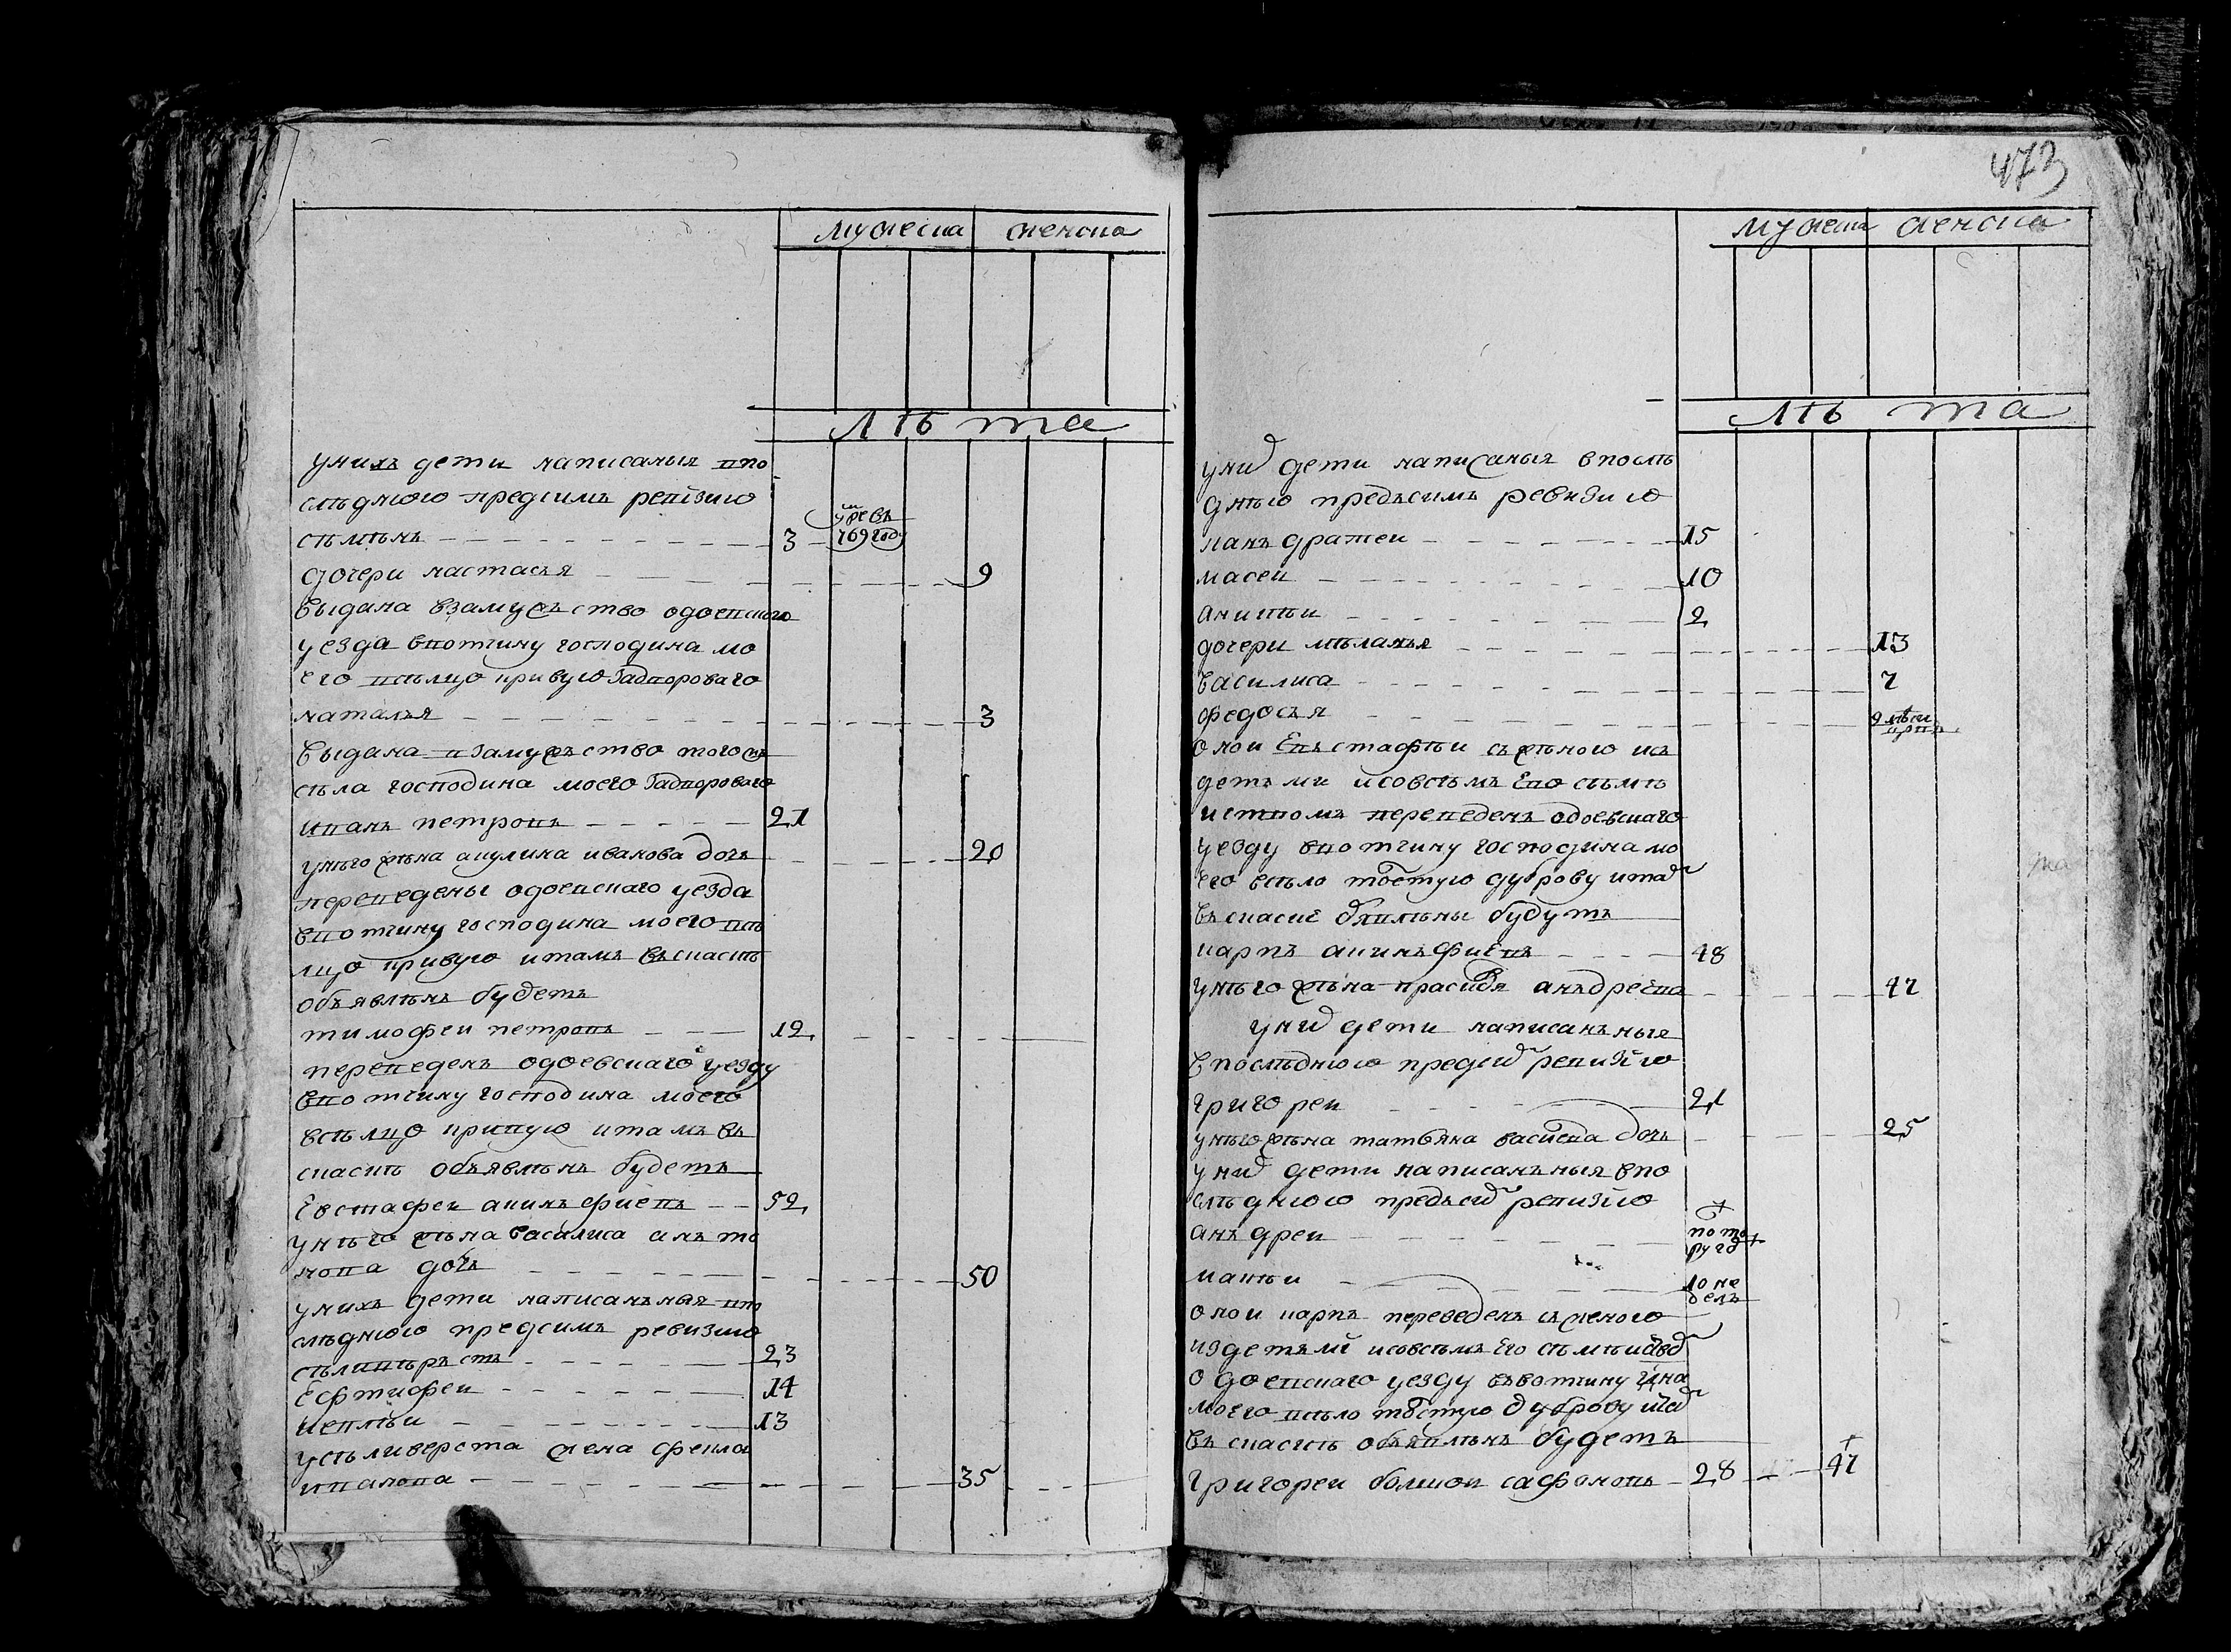 мужеска женска
лѣ та
у нихъ дети написаныя впо
слѣднюю предсимъ ревізию
сѣмѣнъ 3 умре въ 769 году
дочери настасья 9
выдана взамужъство одоевскаго
уезда вотчину господина мо
его всѣлцо кривую
наталья 3
выдана взамужъство того жъ
сѣла господина моего
иванъ петровъ 21
унѣго жѣна акулина иванова дочь 20
переведены одоевскаго уезда
ввотчину господина моего всѣ
лцо кривую итамъ въскаскѣ
объявлѣнъ будетъ
тимофеи петровъ 12
переведенъ одоевскаго уезду
ввотчину господина моего
всѣлцо кривую итамъ въ
скаскѣ объявлѣнъ будетъ
Евстафеи акинъфиевъ 52
унѣго жѣна василиса анъто
нова дочь 50
у нихъ дети написанъныя впо
слѣднюю предсимъ ревизию
сѣливѣрстъ 23
Ефтифеи 14
иевлѣи 13
усѣливерста жена фекла
иванова 35
473
мужеска женска
лѣ та
у них дети написаныя впослѣ
днѣю предъсимъ ревизию
панъдратеи 15
масеи 10
аникѣи 2
дочери мѣланья 13
василиса 7
федосья 9 мѣсицовъ
оной Евъстафѣи съжѣною исъ
детъми исовсѣмъ Ево сѣмѣ
иствомъ переведенъ одоевскаго
уезду ввотчину господина мо
его всѣло толстую дуброву итам
въскаске обявлѣны будутъ
карпъ акинъфиевъ 48
унѣго жѣна прасковя анъдреева 47
у них дети написанъныя
впослѣднюю предсим ревизїю
григореи 21
унѣго жѣна татьяна васильева дочь 25
у них дети написанъныя впо
слѣднюю предъсим ревизїю
анъдреи по второму году
макѣи 10 недель
оной карпъ переведенъ съженою
издетьми исовсѣмъ его сѣмѣиством
одоевскаго уезду въвотчину гдна
моего всѣло толстую дуброву итам
въскаскѣ объявлѣнъ будетъ
григореи болшои сафоновъ 28 47